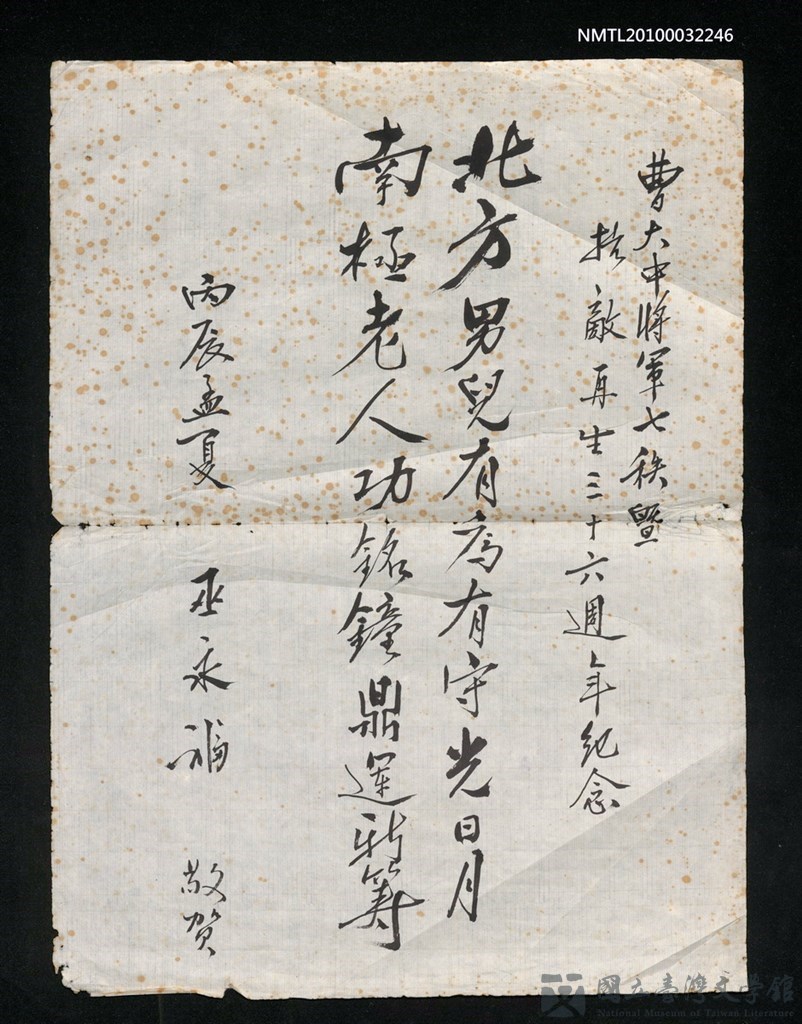 NMTL20100032246
曹大中將軍七秩暨
抗敵再生三十六週年紀念
北方男兒有為有守光日月
南極老人功銘鐘鼎運新籌
丙辰孟夏 巫永福 敬賀
國立臺灣文學館
National Museum of Taiwan Literature